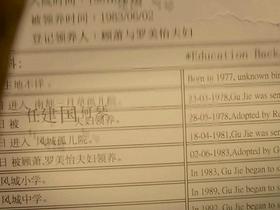 被领养时间：1983/06/02
登记领养人：顾萧与罗美怡夫妇
*Education Back
料：
生地不详。
Born in 1977, unknown bir
日进入
孤儿院。
23-03-1978, Gu Jie was sen
日被任建国
夫妇领养。
28-05-1978, Adopted by Re
日进入风城孤儿院。
18-04-1981, Gu Jie was sen
日被顾萧,罗美怡夫妇领养。
02-06-1983, Adopted by G
风城小学。
In 1983, Gu Jie began to s
风城中学。
In 1989, Gu Jie began to
In 1992, Gu Jie